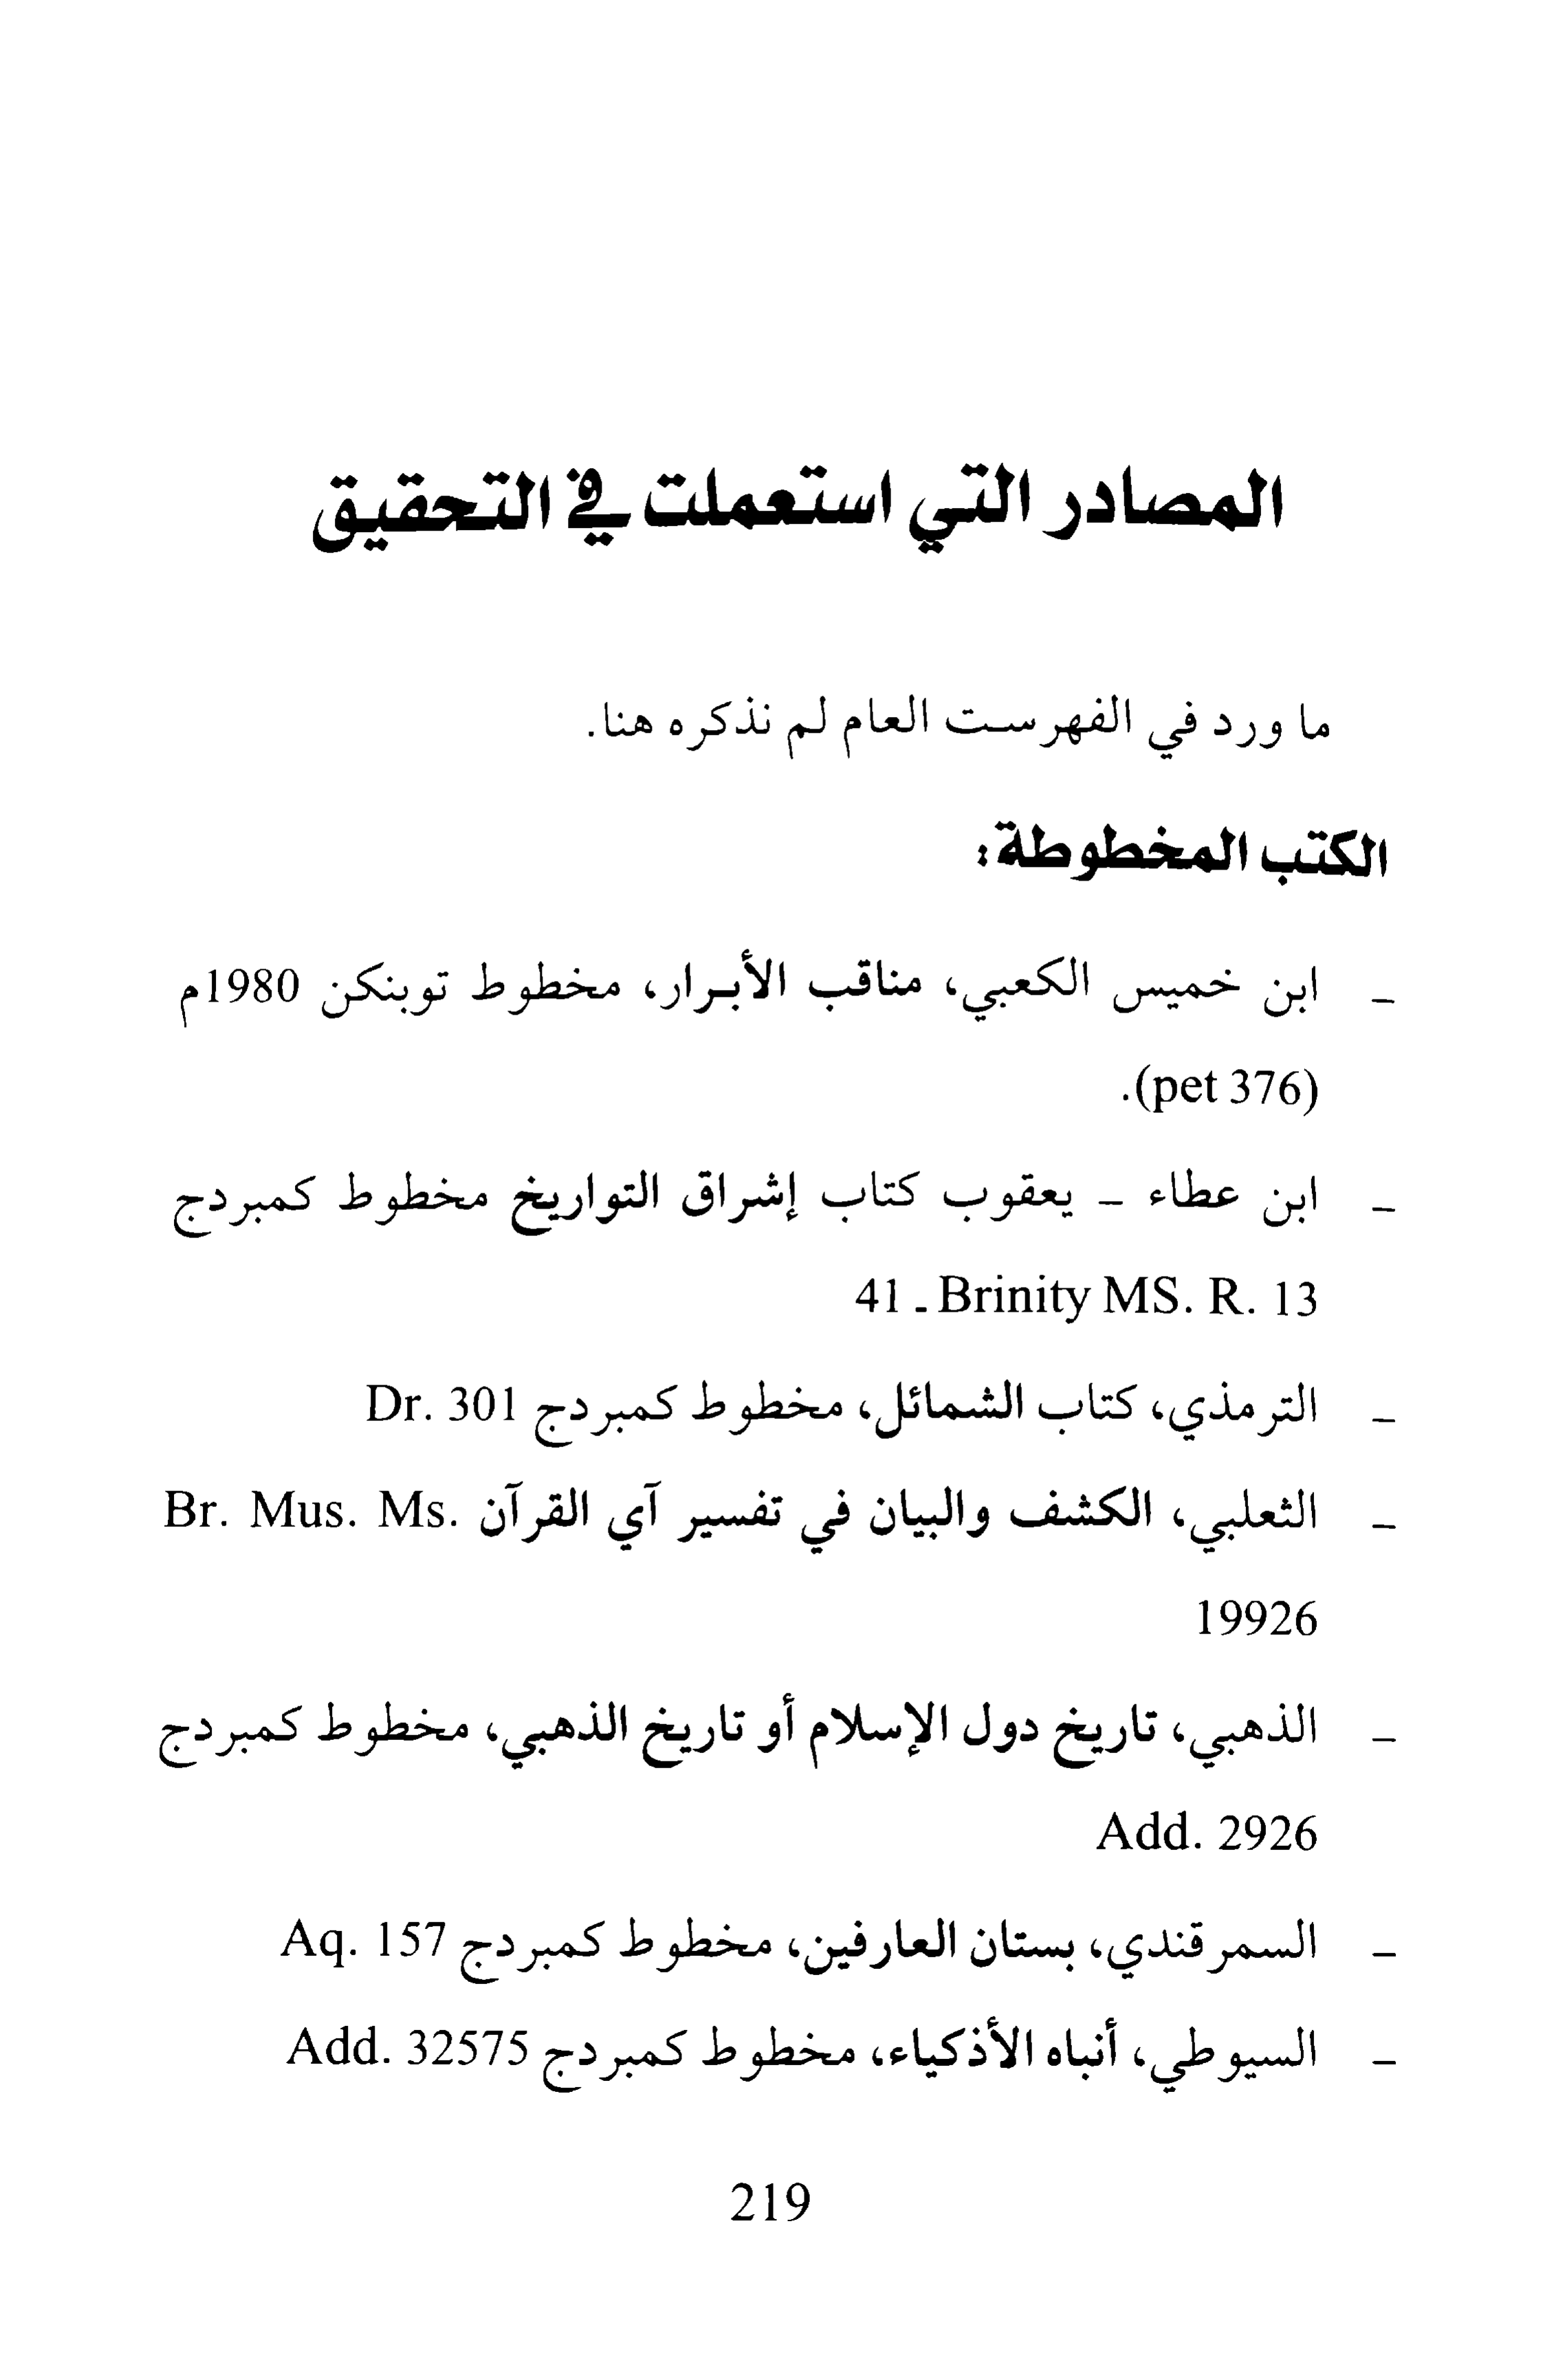 المصادر التي استعملت في التحقيق
ما ورد في الفهرست العام لم نذكره هنا.
الكتب المخطوطة:
- ابن خميس الكعبي، مناقب الأبرار، مخطوط توبنكن 1980م
(pet 376).
- ابن عطاء - يعقوب كتاب إشراق التواريخ مخطوط كمبردج
41 - Brinity MS. R. 13
- الترمذي، كتاب الشمائل، مخطوط كمبردج Dr. 301
- الثعلبي، الكشف والبيان في تفسير آي القرآن Br. Mus. Ms.
19926
- الذهبي، تاريخ دول الإسلام أو تاريخ الذهبي، مخطوط كمبردج
Add. 2926
- السمرقندي، بستان العارفين، مخطوط كمبردج Aq. 157
- السيوطي، أنباه الأذكياء، مخطوط كمبردج Add. 32575
219